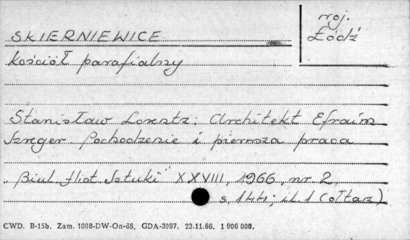 SKIERNIEWICE
woj. Łódź
Kościół parafialny
Stanisław Lorentz: Architekt Efraim
Szreger. Pochodzenie i pierwsza praca
"Biul. Hist. Sztuki" XXVIII, 1966, nr 2,
s. 144; il. 1 (ołtarz)
CWD. B-15b. Zam. 1008-DW-On-66. GDA-3097. 23.11.66. 1 000 000.